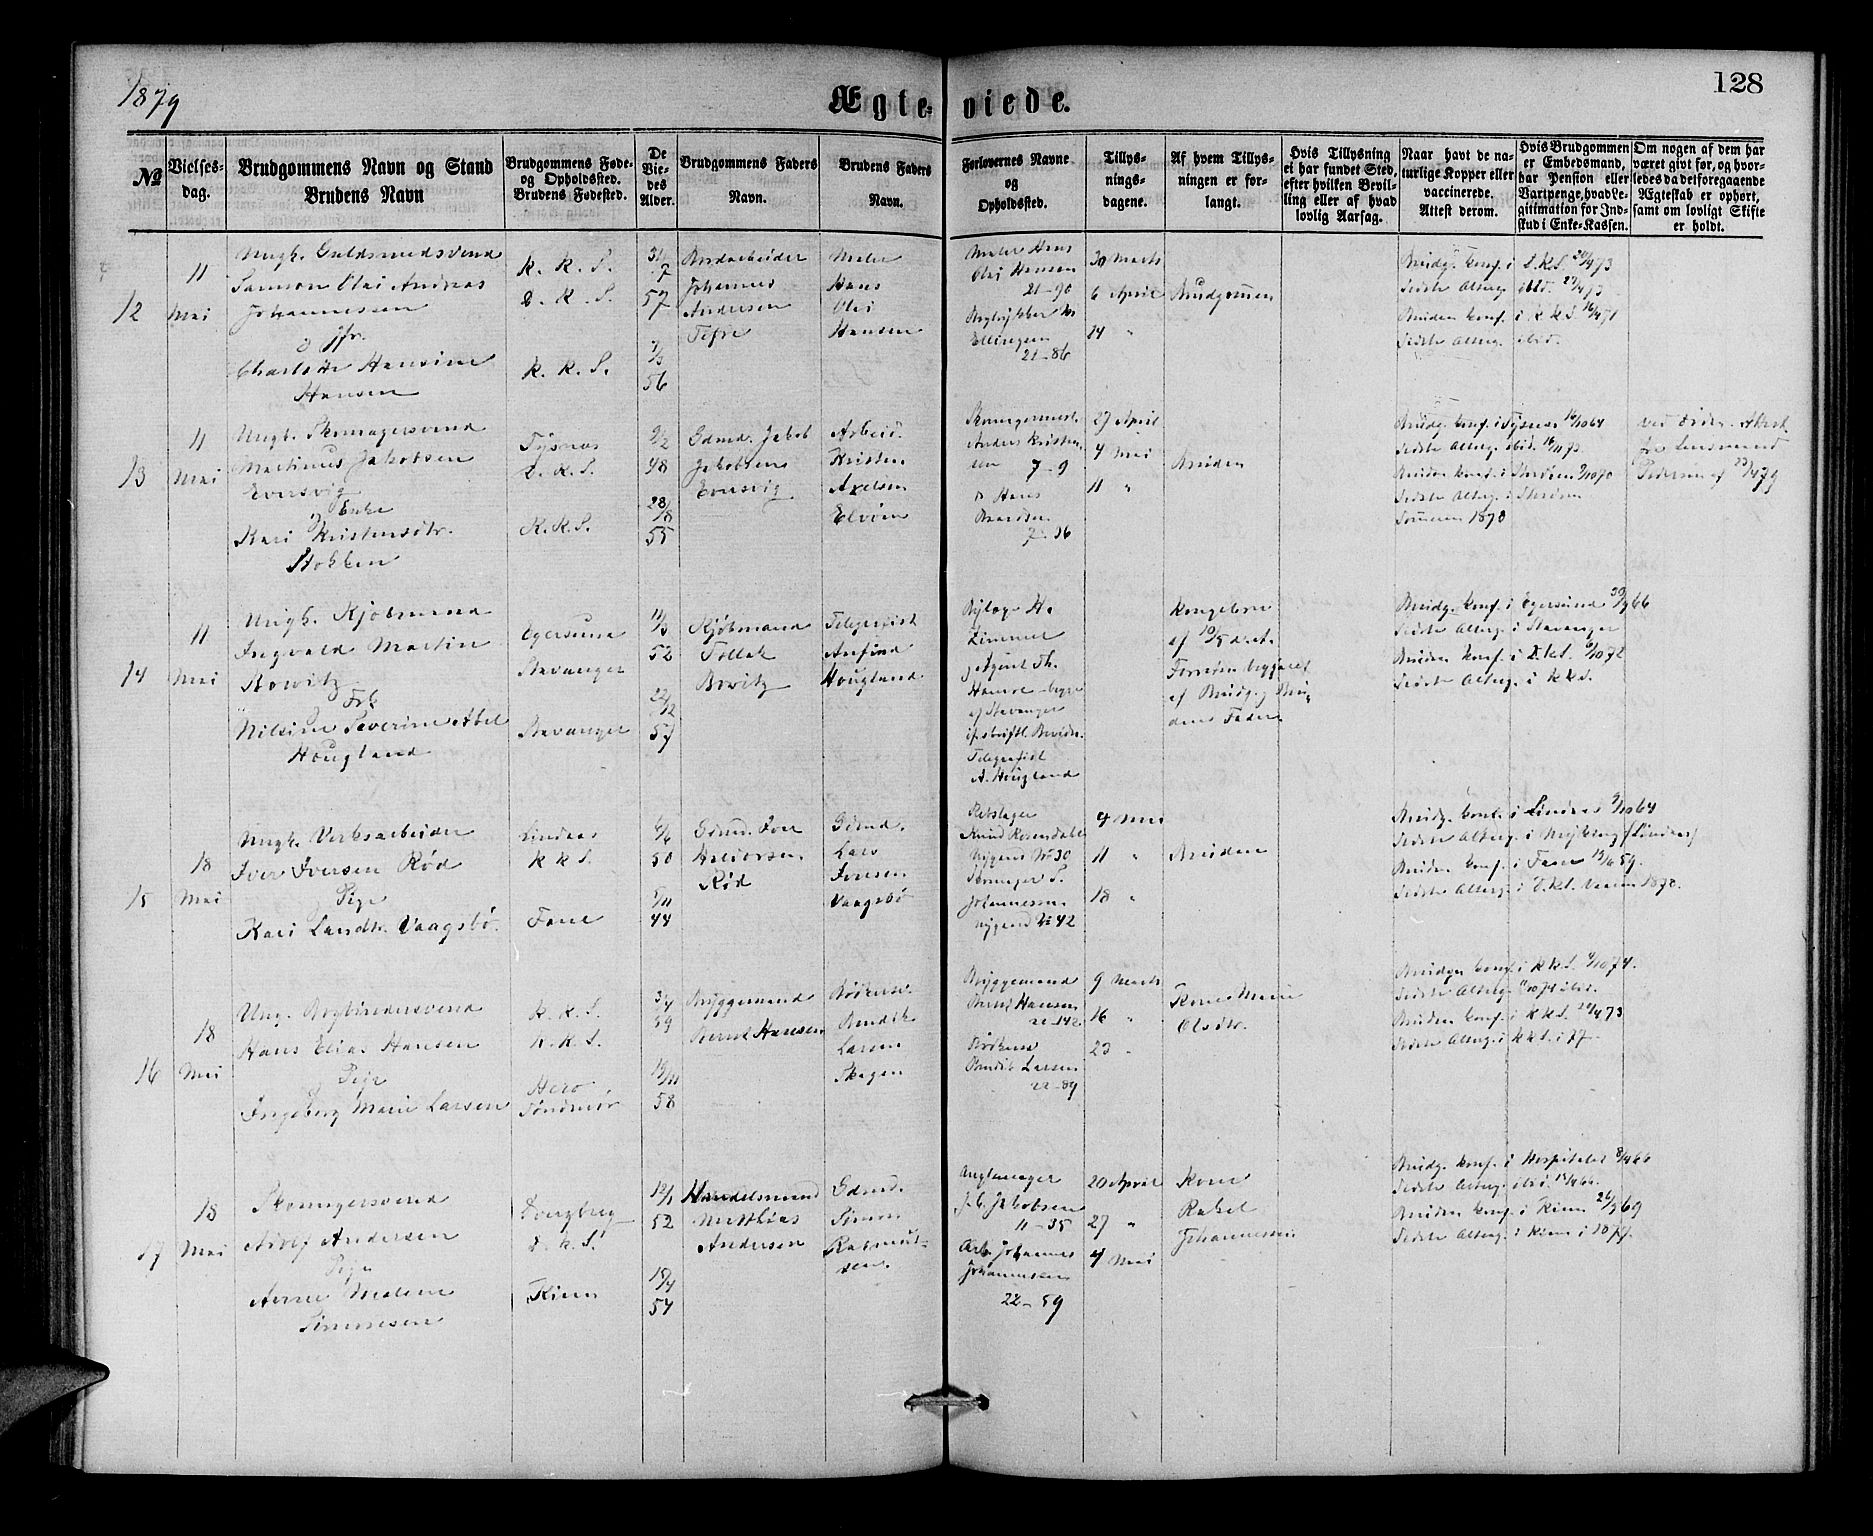 1879
128
Ægteviede.
№
Vielses-
dag.
Brudgommens Navn og Stand
Brudens Navn
Brudgommens Føde-
og Opholdssted.
Brudens Fødested.
De
Vie-
des
Alder.
Brudgommens Faders
Navn.
Brudens Faders
Navn.
Forlovernes Navne
og
Opholdssted.
Tillys-
nings-
dagene.
Af hvem Tillys-
ningen er for-
langt.
Hvis Tillysning
ei har fundet Sted,
efter hvilken Bevil-
ling eller af hvad
lovlig Aarsag.
Naar havt de na-
turlige Kopper eller
vaccinerede.
Attest derom.
Hvis Brudgommen
er Embedsmand,
har Pension eller
Vartpenge, hvad Le-
gitimation for Ind-
skud i Enke-Kassen.
Om nogen af dem har
været givt før, og hvor-
ledes da det foregaaende
Ægteskab er ophørt,
samt om lovligt Skifte
er holdt.
12
11
Mai
Ungk. Guldsmedsvend
Samson Olai Andreas
Johannesen
Jfr.
Charlotte Hansine
Hansen
K. K. S.
D. K. S.
K. K. S.
57
56
Johannes
Andersen
Maler
Hans
Olai
Hansen
Maler Hans
Olai Hansen
21-90
Ellingsen
21-86
30 Marts
6 April
14 "
Brudgommen
Brudg. konf. i D.K.S. 20/4 73
Sidste Alterg. ibid. 27/4 73
Bruden konf. i K.K.S. 16/4 71
Sidste Alterg. ibid.
13
11
Mai
Ungk. Skomagersvend
Martinus Jakobsen
Eversvig
Enke
Kari Kristensdtr.
Stokken
Tysnæs
D. K. S.
K. K. S.
9/2
48
28/8
55
Gdmd. Jakob
Jakobsen
Eversvig
Arbeid.
Kristen
Axelsen
Skomagermest.
Anders Kristen-
sen
7-9
Hans
7-36
27 April
4 Mai
11 "
Bruden
Brudg. konf. i Tysnæs 16/10 64
Sidste Alterg. ibid. 16/11 73
Bruden konf. i Stordøen 9/10 70
Sidste Alterg. i Stordøen
Sommeren 1878
Lensmand
Pedersen af 23/4 79
14
11
Mai
Ungk. Kjøbmand
Ingvald Martin
Bowitz
Frk.
Nilsine Severine Abel
Hougland
Egersund
Stavanger
Stavanger
11/3
52
22/12
57
Kjøbmand
Tollak
Bowitz
Telegrafist
Anfind
Hougland
Zimmer
Agent Th.
Hansen begge
af Stavanger
Telegrafist
A. Hougland
Kongebrev
af 10/5 d. A.
af Brudg. & Bru-
dens Fader
Brudg. konf. i Egersund 30/9 66
Sidste Alterg. i Stavanger
Bruden konf. i D.K.S. 6/10 72
Sidste Alterg. i K.K.S.
15
18
Mai
Ungk. Verksarbeider
Iver Iversen Rød
Pige
Kari Larsdtr. Vaagsbø
Lindaas
K. K. S.
Fane
4/6
50
5/11
44
Gdmd. Iver
Halvorsen
Rød
Gdmd.
Lars
Iversen
Vaagsbø
Rebslager
Knud Rosendahl
Nygaard № 30
Skomager S.
Johannesen
Nygaard № 42
4 Mai
11 "
18 "
Bruden
Brudg. konf. i Lindaas 9/10 64
Bruden konf. i Fane 12/6 59.
Sidste Alterg. i D.K.S. Vaaren 1878.
16
18
Mai
Ung. Bogbindersvend
Hans Elias Hansen
Pige
Ingeborg Marie Larsen
K. K. S.
K. K. S.
Herø
Søndmør
3/4
59
19/11
58
Bryggemand
Bernt Hansen
Bødkersv.
Bendik
Larsen
Skogen
Bryggemand
Bernt Hansen
22-142
Bødkersv.
Bendik Larsen
22-89
9 Marts
16 "
23 "
Kone Marie
Olsdtr.
Brudgom konf. i K.K.S. 4/10 74.
Bruden konf. i K.K.S. 20/4 73
Sidste Alterg. i K.K.S. i 77.
17
18
Mai
Skomagersvend
Adolf Andersen
Pige
Anne Malene
Simonsen
D. K. S.
Kinn
12/1
52
18/4
54
Handelsmand
Matthias
Andersen
Gdmd.
Simon
Rasmus-
sen.
J. C. Jakobsen
11-35
Arb. Johannes
Johannesen
22-59
20 April
27 "
4 Mai
Kone
Rakel
Johannesen
Brudg. konf. i Hospitalet 8/4 66
Sidste Alterg. ibid. 15/4 66.
Bruden konf. i Kinn 26/9 69
Sidste Alterg. i Kinn i 1877.